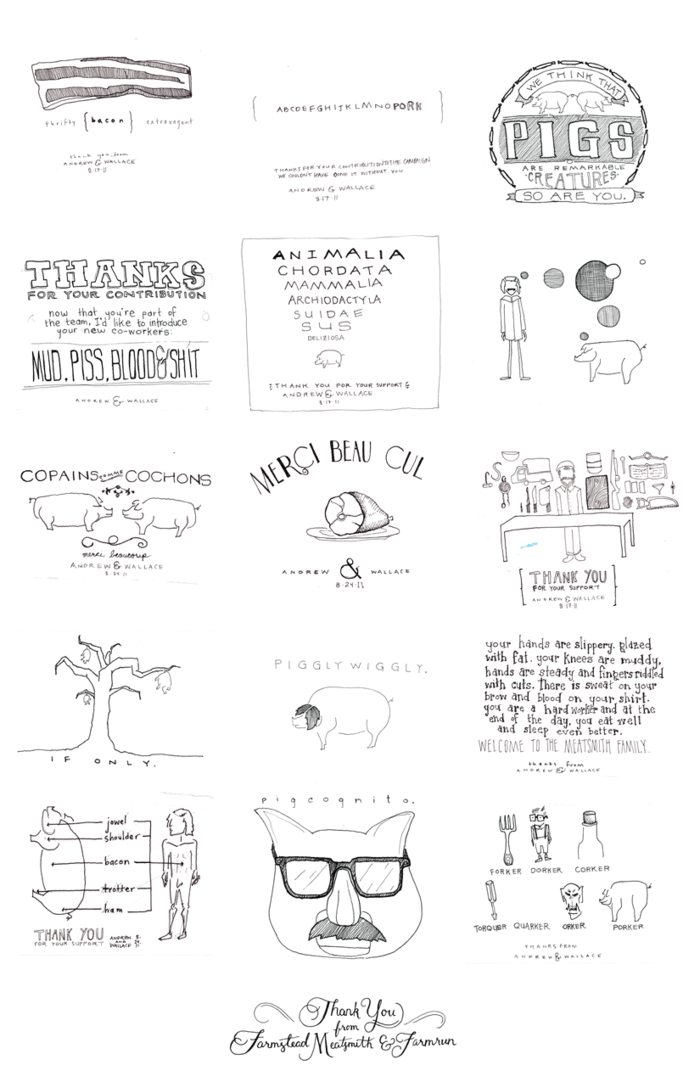 thrifty {bacon} extravagant
thank you from
ANDREW & WALLACE
8·17·11
ABCDEFGHIJKLMNOPORK
THANKS FOR YOUR CONTRIBUTION TO THE CAMPAIGN
WE COULDN'T HAVE DONE IT WITHOUT YOU
ANDREW & WALLACE
8·17·11
WE THINK THAT
PIGS
ARE REMARKABLE
·CREATURES·
SO ARE YOU.
THANKS
FOR YOUR CONTRIBUTION
now that you're part of
the team, I'd like to introduce
your new co-workers:
MUD, PISS, BLOOD & SHIT
ANDREW & WALLACE
ANIMALIA
CHORDATA
MAMMALIA
ARCHIODACTYLA
SUIDAE
SUS
DELIZIOSA
THANK YOU FOR YOUR SUPPORT
ANDREW & WALLACE
8·17·11
COPAINS comme COCHONS
merci beaucoup
ANDREW & WALLACE
8·24·11
MERCI BEAU CUL
ANDREW & WALLACE
8·24·11
[THANK YOU
FOR YOUR SUPPORT
ANDREW & WALLACE
8·17·11]
IF ONLY.
PIGGLY WIGGLY.
your hands are slippery, glazed
with fat. your knees are muddy,
hands are steady and fingers riddled
with cuts. There is sweat on your
brow and blood on your shirt.
you are a hard worker and at the
end of the day, you eat well
and sleep even better.
WELCOME TO THE MEATSMITH FAMILY.
thanks from
ANDREW & WALLACE
jowel
shoulder
bacon
trotter
ham
THANK YOU
FOR YOUR SUPPORT
ANDREW
AND
WALLACE
pigcognito.
FORKER DORKER CORKER
TORQUER QUARKER ORKER PORKER
THANKS FROM
ANDREW & WALLACE
Thank You
from
Farmstead Meatsmith & Farmrun